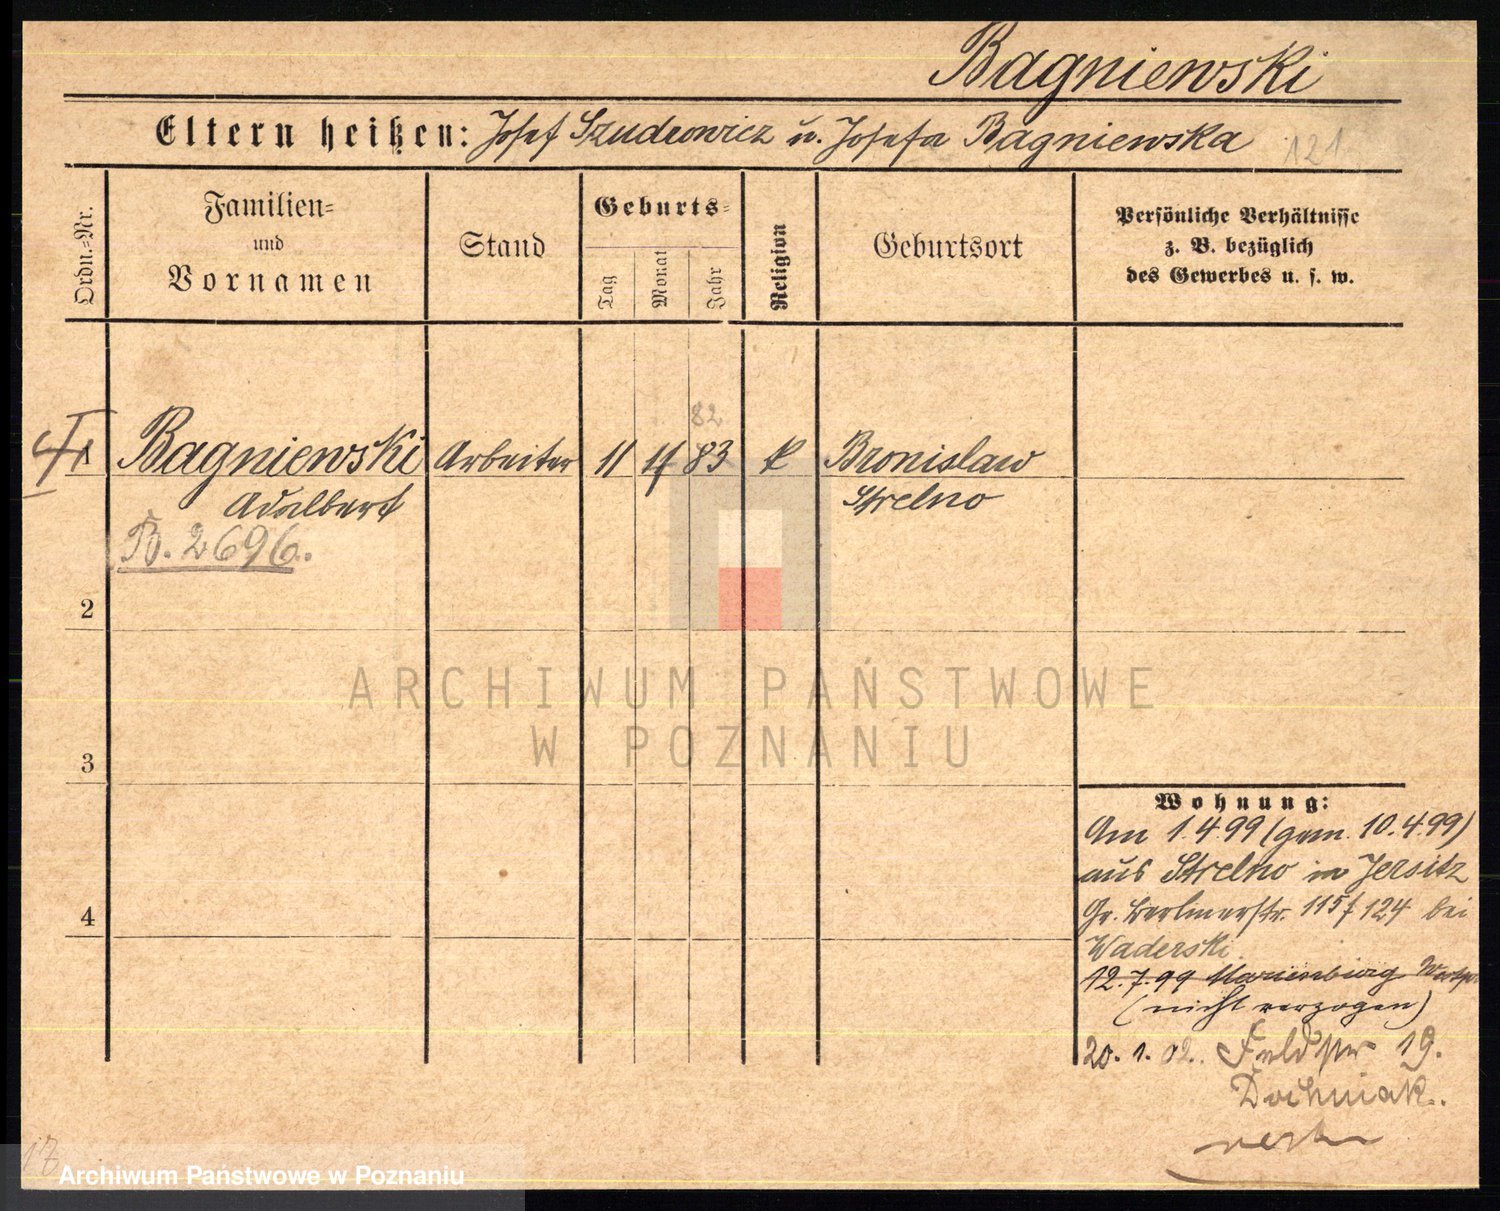 Bagniewski
Eltern heißen: Josef Szudrowicz u. Josefa Bagniewska 121
Ordn.=Nr.
Familien=
und
Vornamen
Stand
Geburts=
Tag
Monat
Jahr
Religion
Geburtsort
Persönliche Verhältnisse
z. B. bezüglich
des Gewerbes u. s. w.
82
1 Bagniewski Arbeiter 11 4 83 k Bronislaw
Adalbert Strelno
B. 2696.
2
3
4
ARCHIWUM PAŃSTWOWE
W POZNANIU
Wohnung:
Am 1.4.99 (gem. 10.4.99)
aus Strelno in Jersitz
Gr. Berlinerstr. 115/124 bei
Waderski.
12.7.99 Marienburg Westpr
(nicht verzogen)
20.1.02. Feldstr 19.
Dochniak.
17
Archiwum Państwowe w Poznaniu